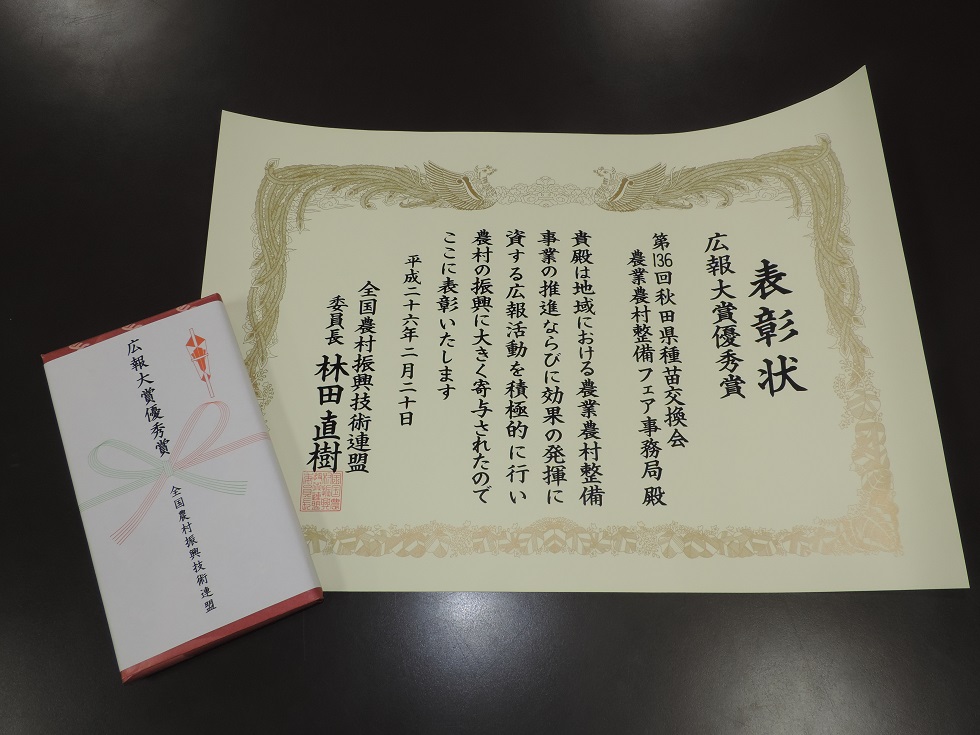 表彰状
広報大賞優秀賞
第136回秋田県種苗交換会
農業農村整備フェア事務局 殿
貴殿は地域における農業農村整備
事業の推進ならびに効果の発揮に
資する広報活動を積極的に行い
農村の振興に大きく寄与されたので
ここに表彰いたします
平成二十六年二月二十日
全国農村振興技術連盟
委員長 林田直樹
広報大賞優秀賞
全国農村振興技術連盟